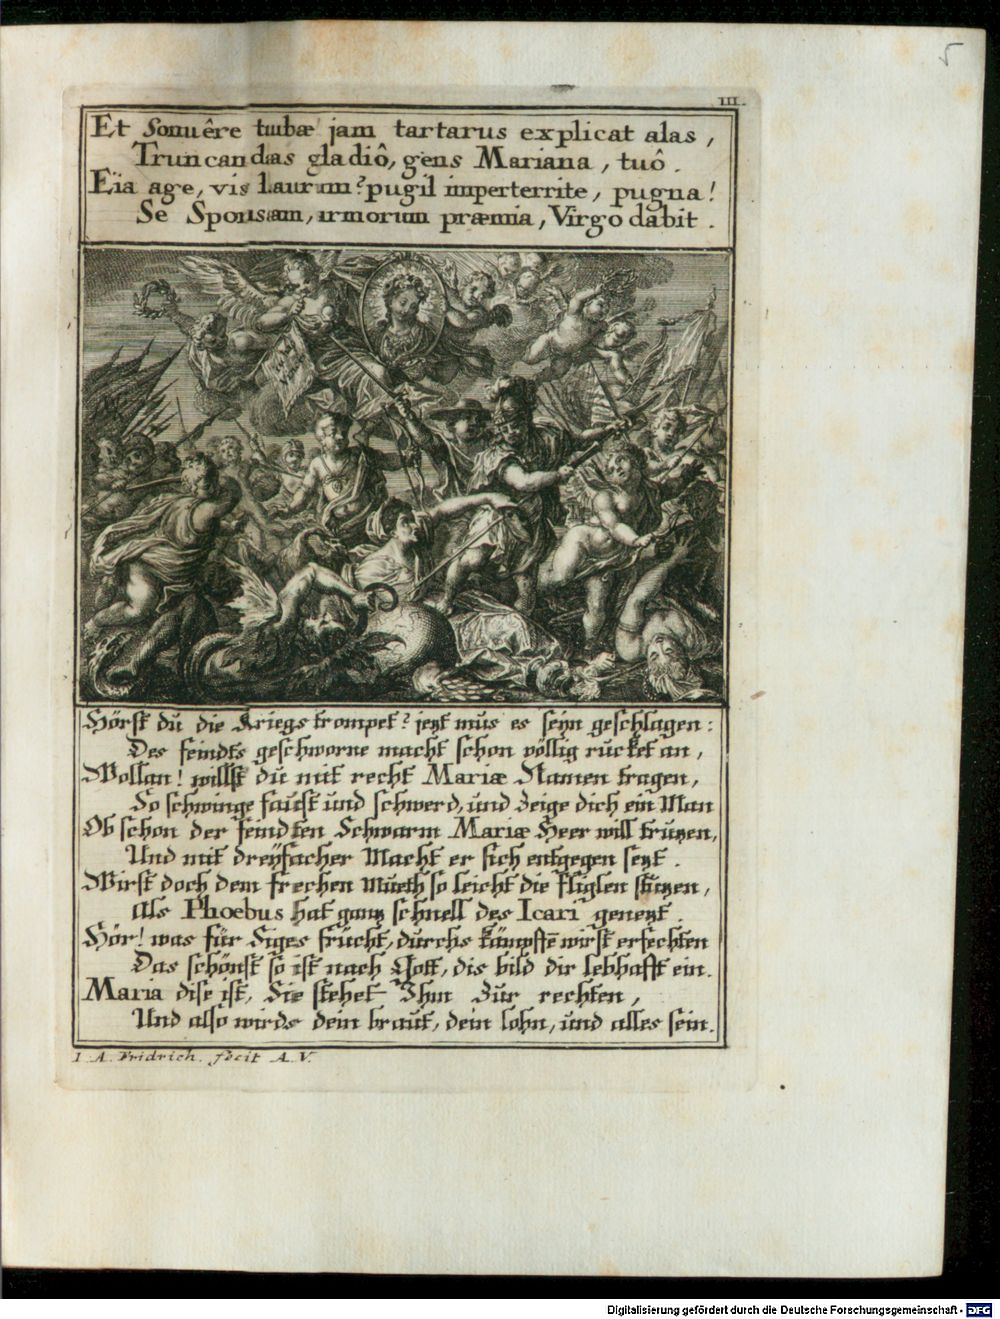 5
III.
Et sonuêre tubæ jam tartarus explicat alas,
Truncandas gladiô, gens Mariana, tuô.
Eïa age, vis Laurum? pugil imperterrite, pugna!
Se Sponsam, armorum præmia, Virgo dabit.
Hörst du die Kriegstrompet? jezt mus es seyn geschlagen:
Des feindts geschworne macht schon völlig rucket an,
Wollan! willst du mit recht Mariæ Namen tragen,
So schwinge faust und schwerd, und zeige dich ein Man
Ob schon der feindten Schwarm Mariæ Heer will truzen,
Und mit dreÿfacher Macht er sich entgegen sezt.
Wirst doch dem frechen Mueth so leicht die fliglen stuzen,
als Phoebus hat ganz schnell des Icari genezt.
Hör! was für Siges frücht, durchs kämpffē wirst erfechten
Das schönst so ist nach Gott, dis bild dir lebhafft ein.
Maria dise ist, Die stehet Ihm zur rechten,
Und also wirds dein braut, dein lohn, und alles sein.
I. A. Fridrich. fecit A. V.
Digitalisierung gefördert durch die Deutsche Forschungsgemeinschaft - DFG